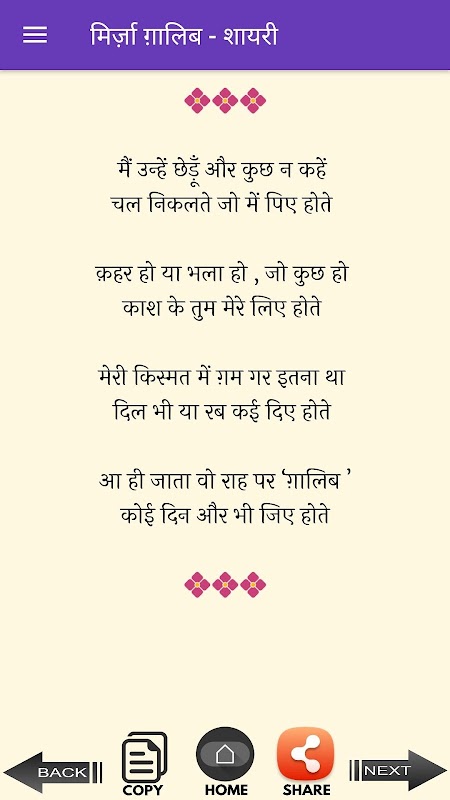 मिर्ज़ा ग़ालिब - शायरी
मैं उन्हें छेड़ूँ और कुछ न कहें
चल निकलते जो में पिए होते
क़हर हो या भला हो , जो कुछ हो
काश के तुम मेरे लिए होते
मेरी किस्मत में ग़म गर इतना था
दिल भी या रब कई दिए होते
आ ही जाता वो राह पर ‘ग़ालिब ’
कोई दिन और भी जिए होते
BACK
COPY
HOME
SHARE
NEXT